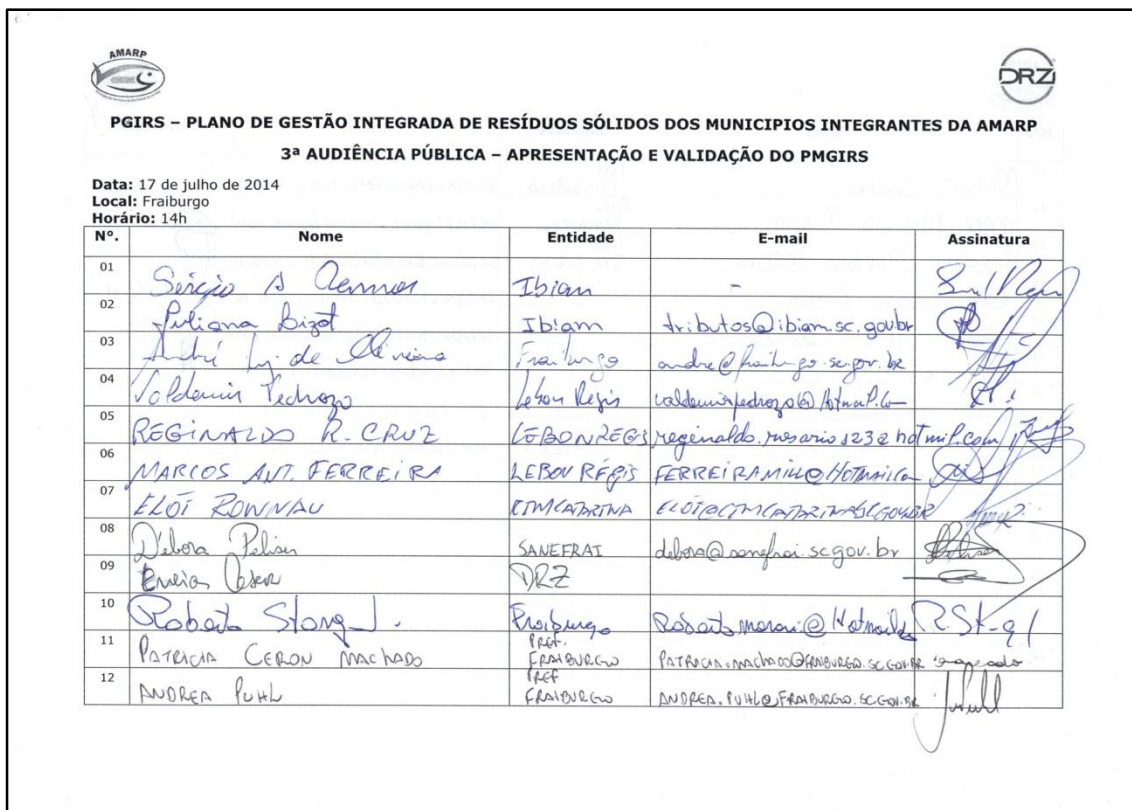 AMARP
DRZ
PGIRS – PLANO DE GESTÃO INTEGRADA DE RESÍDUOS SÓLIDOS DOS MUNICIPIOS INTEGRANTES DA AMARP
3ª AUDIÊNCIA PÚBLICA – APRESENTAÇÃO E VALIDAÇÃO DO PMGIRS
Data: 17 de julho de 2014
Local: Fraiburgo
Horário: 14h
Nº. Nome Entidade E-mail Assinatura
01 Sérgio A Ibiam -
02 Juliana Bizot Ibiam tributos@ibiam.sc.gov.br
03 André de Oliveira Fraiburgo andre@fraiburgo.sc.gov.br
04 Valdemir Pedrozo Lebon Régis valdemirpedrozo@hotmail.com
05 REGINALDO R. CRUZ LEBON REGIS reginaldo.rosario123@hotmil.com
06 MARCOS ANT. FERREIRA LEBON RÉGIS FERREIRAMILL@HOTMAIL.COM
07 ELÓI RONNAU
08 Débora SANEFRAI debora@sanefrai.sc.gov.br
09 DRZ
10 Roberto Fraiburgo
11 PATRICIA CERON MACHADO PREF. FRAIBURGO PATRICIA.MACHADO@FRAIBURGO.SC.GOV.BR
12 ANDREA PUHL PREF FRAIBURGO ANDREA.PUHL@FRAIBURGO.SC.GOV.BR